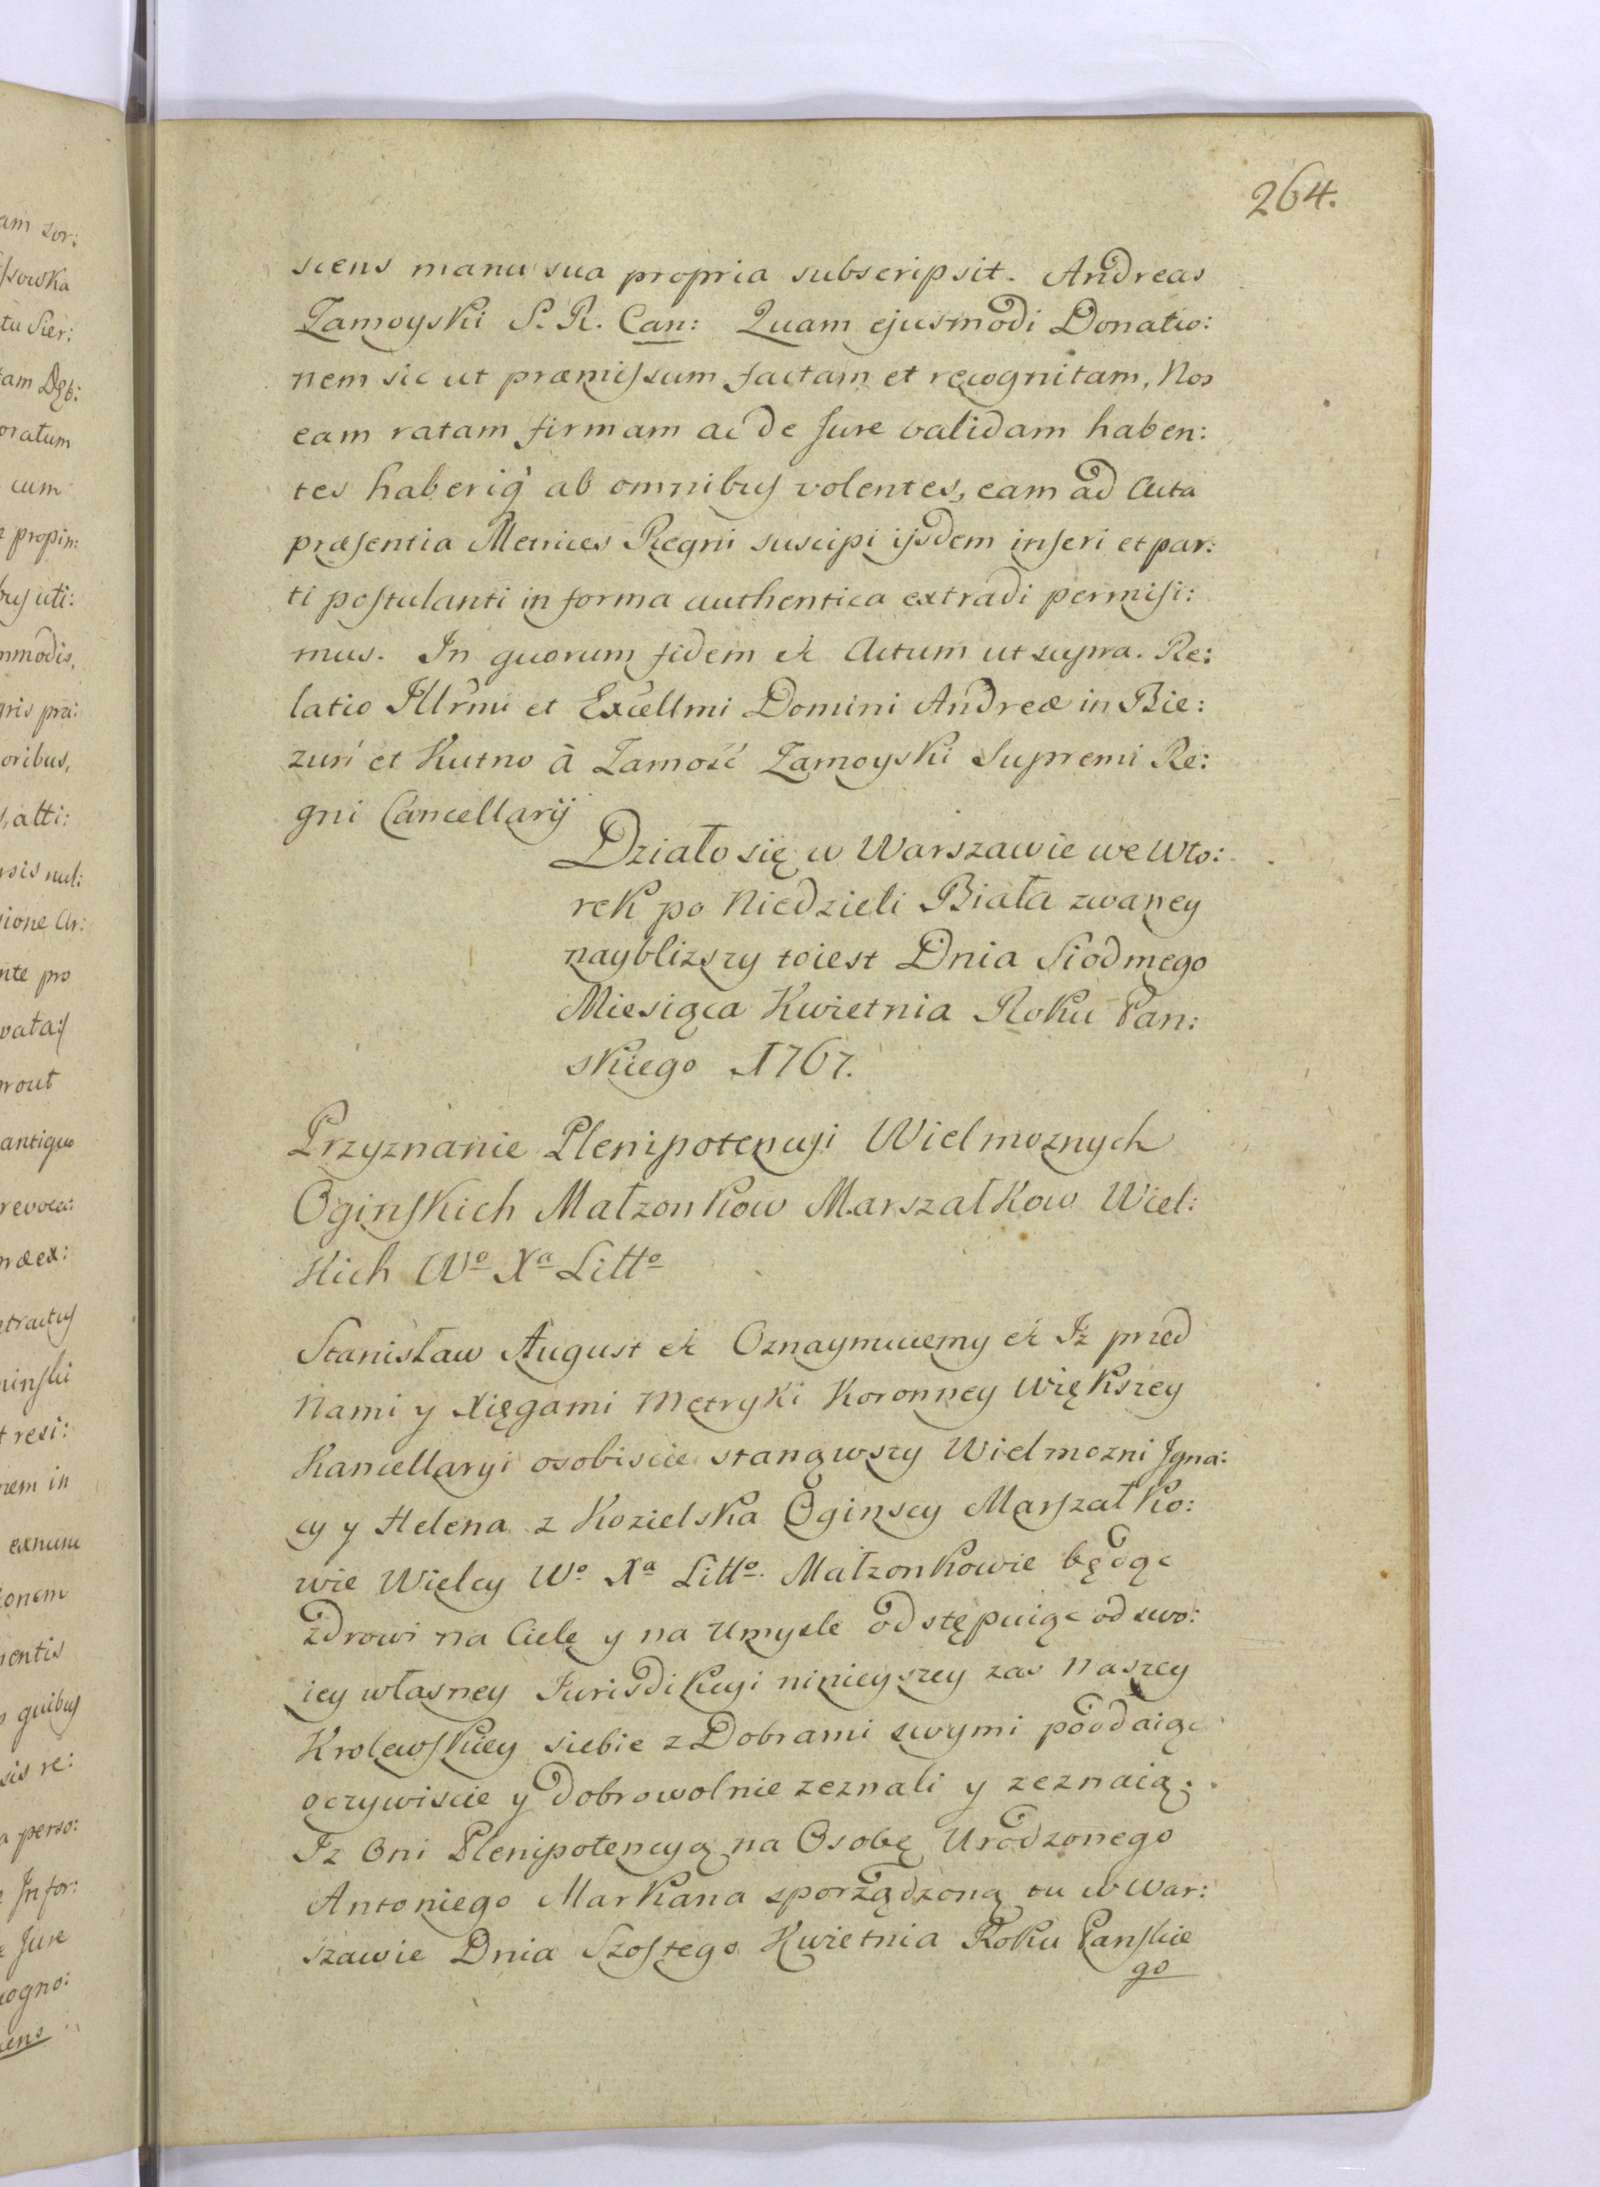 264.
sciens manu sua propria subscripsit. Andreas
Zamoyski S. R. Can: Quam ejusmodi Donatio:
nem sic ut præmissum factam et recognitam, Nos
eam ratam firmam ac de Jure validam haben:
tes haberiq̃ ab omnibus volentes, eam ad Acta
præsentia Metrices Regni suscipi ijsdem inseri et par:
ti postulanti in forma authentica extradi permisi:
mus. In quorum fidem &c Actum ut supra. Re:
latio Illrmi et Excellmi Domini Andreæ in Bie:
zuń et Kutno à Zamość Zamoyski Supremi Re:
gni Cancellarij
Działo się w Warszawie we Wto:
rek po Niedzieli Biała zwaney
naybliższy toiest Dnia Siodmego
Miesiąca Kwietnia Roku Pan:
skiego 1767.
Przyznanie Plenipotencyi Wielmoznych
Oginskich Małzonkow Marszałkow Wiel:
kich Wº Xª Littº
Stanisław August &c Oznaymuiemy &c Iż przed
Nami y Xięgami Metryki Koronney Większey
Kancellaryi osobiscie stanąwszy Wielmozni Igna:
cy y Helena z Kozielska Oginscy Marszałko:
wie Wielcy Wº Xª Littº. Małzonkowie będąc
zdrowi na Ciele y na Umysle odstępuiąc od swo:
iey własney Jurisdikcyi ninieyszey zas Naszey
Krolewskiey siebie z Dobrami swymi poddaiąc
oczywiscie y dobrowolnie zeznali y zeznaią.
Iz Oni Plenipotencyą na Osobę Urodzonego
Antoniego Markana sporządzoną tu w War:
szawie Dnia Szostego Kwietnia Roku Panskie
go